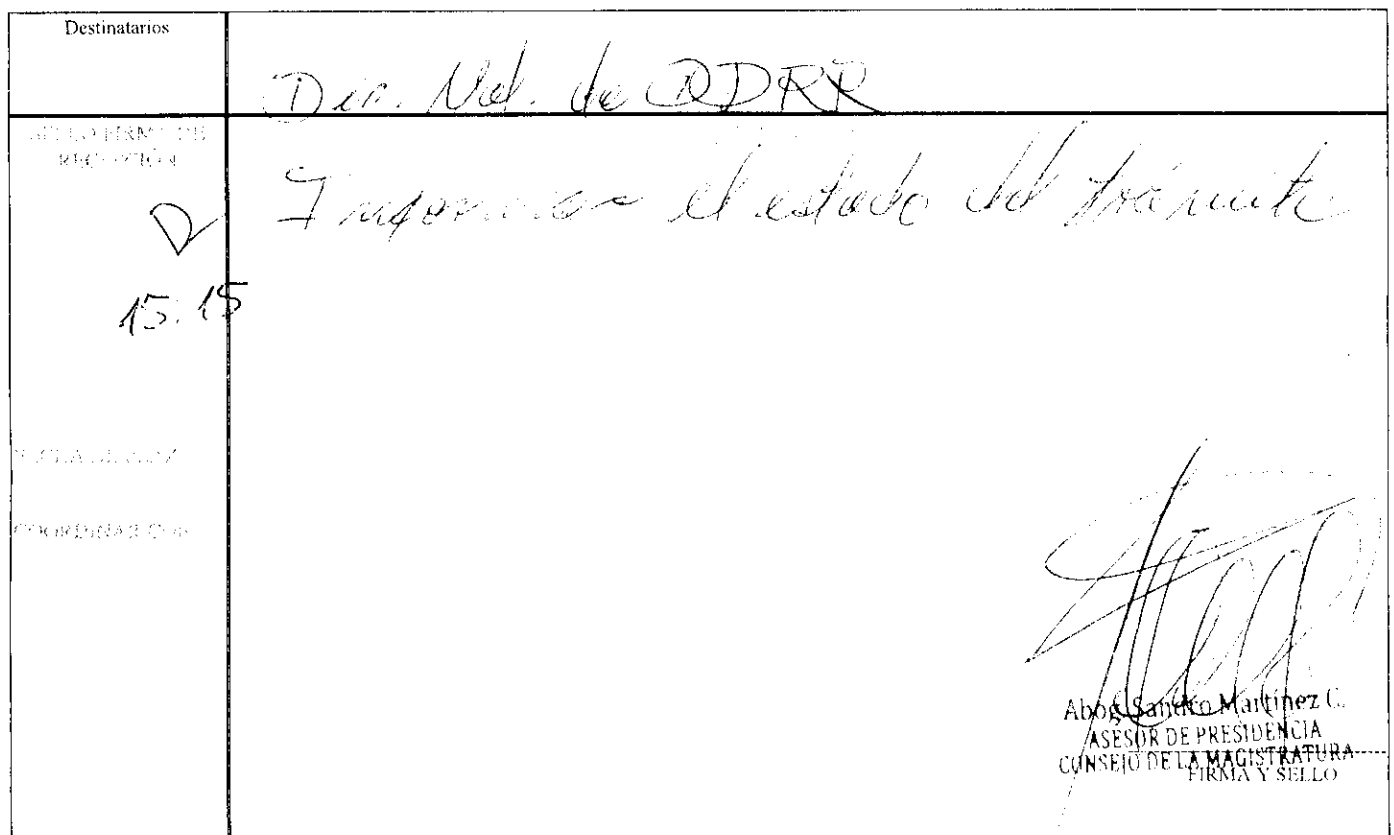 Destinatarios
Dir. Nal. de DDRR
SELLO FIRMA DE
RECEPCIÓN
Informar el estado del trámite
15:15
COORDINAR CON
Abog. Sandro Martinez C.
ASESOR DE PRESIDENCIA
CONSEJO DE LA MAGISTRATURA
FIRMA Y SELLO